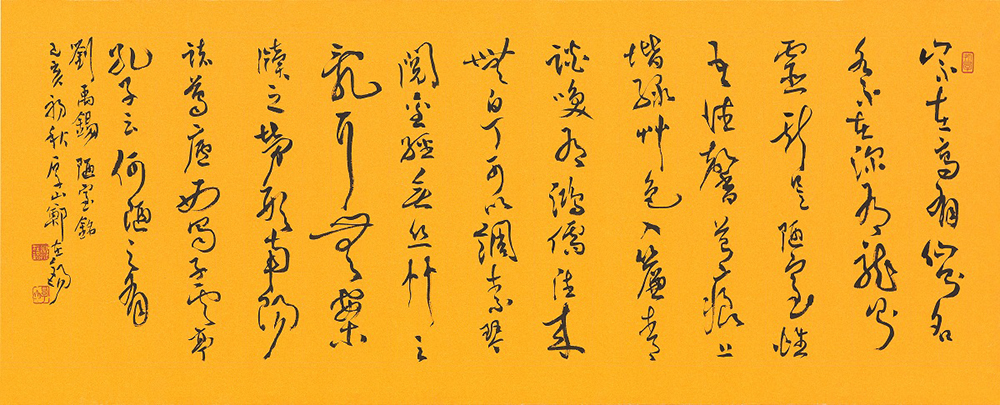 山不在高有仙名
水不在深有龍則
靈斯是陋室惟
吾德馨苔痕上
堦綠艸色入簾青
談笑有鴻儒往來
無白丁可以調素琴
閱金經無絲竹之
亂耳無案
牘之勞形南陽
諸葛廬西蜀子雲亭
孔子云何陋之有
劉禹錫 陋室銘
己亥初秋 山鄭在錫